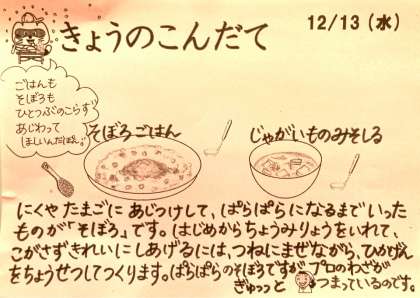 きょうのこんだて
12/13(水)
ごはんも
そぼろも
ひとつぶのこらず
あじわって
ほしいんだぽん。
そぼろごはん
じゃがいものみそしる
にくや たまごに あじつけして、ぱらぱらになるまでいった
ものが「そぼろ」です。はじめからちょうみりょうをいれて、
こがさずきれいにしあげるには、つねにまぜながら、ひかげん
をちょうせつしてつくります。ぱらぱらのそぼろですが プロのわざが
ぎゅっっと つまっているのです。